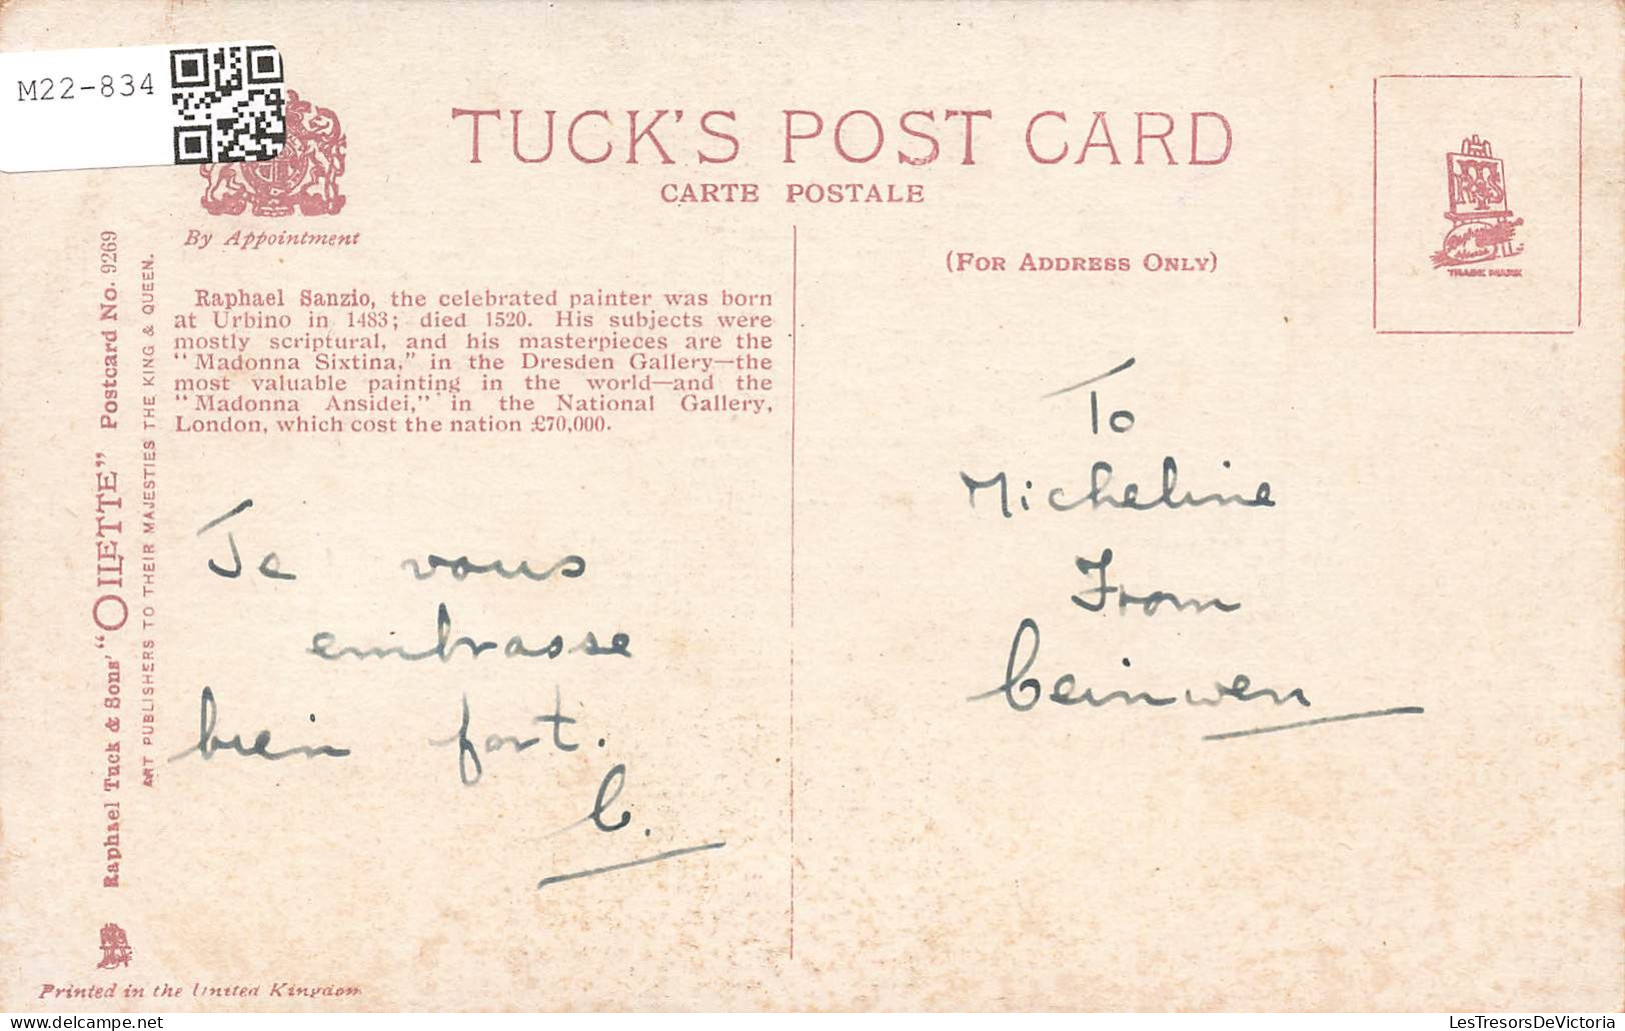 M22-834
TUCK'S POST CARD
CARTE POSTALE
By Appointment
(FOR ADDRESS ONLY)
TRADE MARK
Raphael Sanzio, the celebrated painter was born
at Urbino in 1483; died 1520. His subjects were
mostly scriptural, and his masterpieces are the
"Madonna Sixtina," in the Dresden Gallery—the
most valuable painting in the world—and the
"Madonna Ansidei," in the National Gallery,
London, which cost the nation £70,000.
Raphael Tuck & Sons' "OILETTE" Postcard No. 9269
ART PUBLISHERS TO THEIR MAJESTIES THE KING & QUEEN.
Je vous
embrasse
bien fort.
C.
To
Micheline
From
Ceinwen
Printed in the United Kingdom
LesTresorsDeVictoria